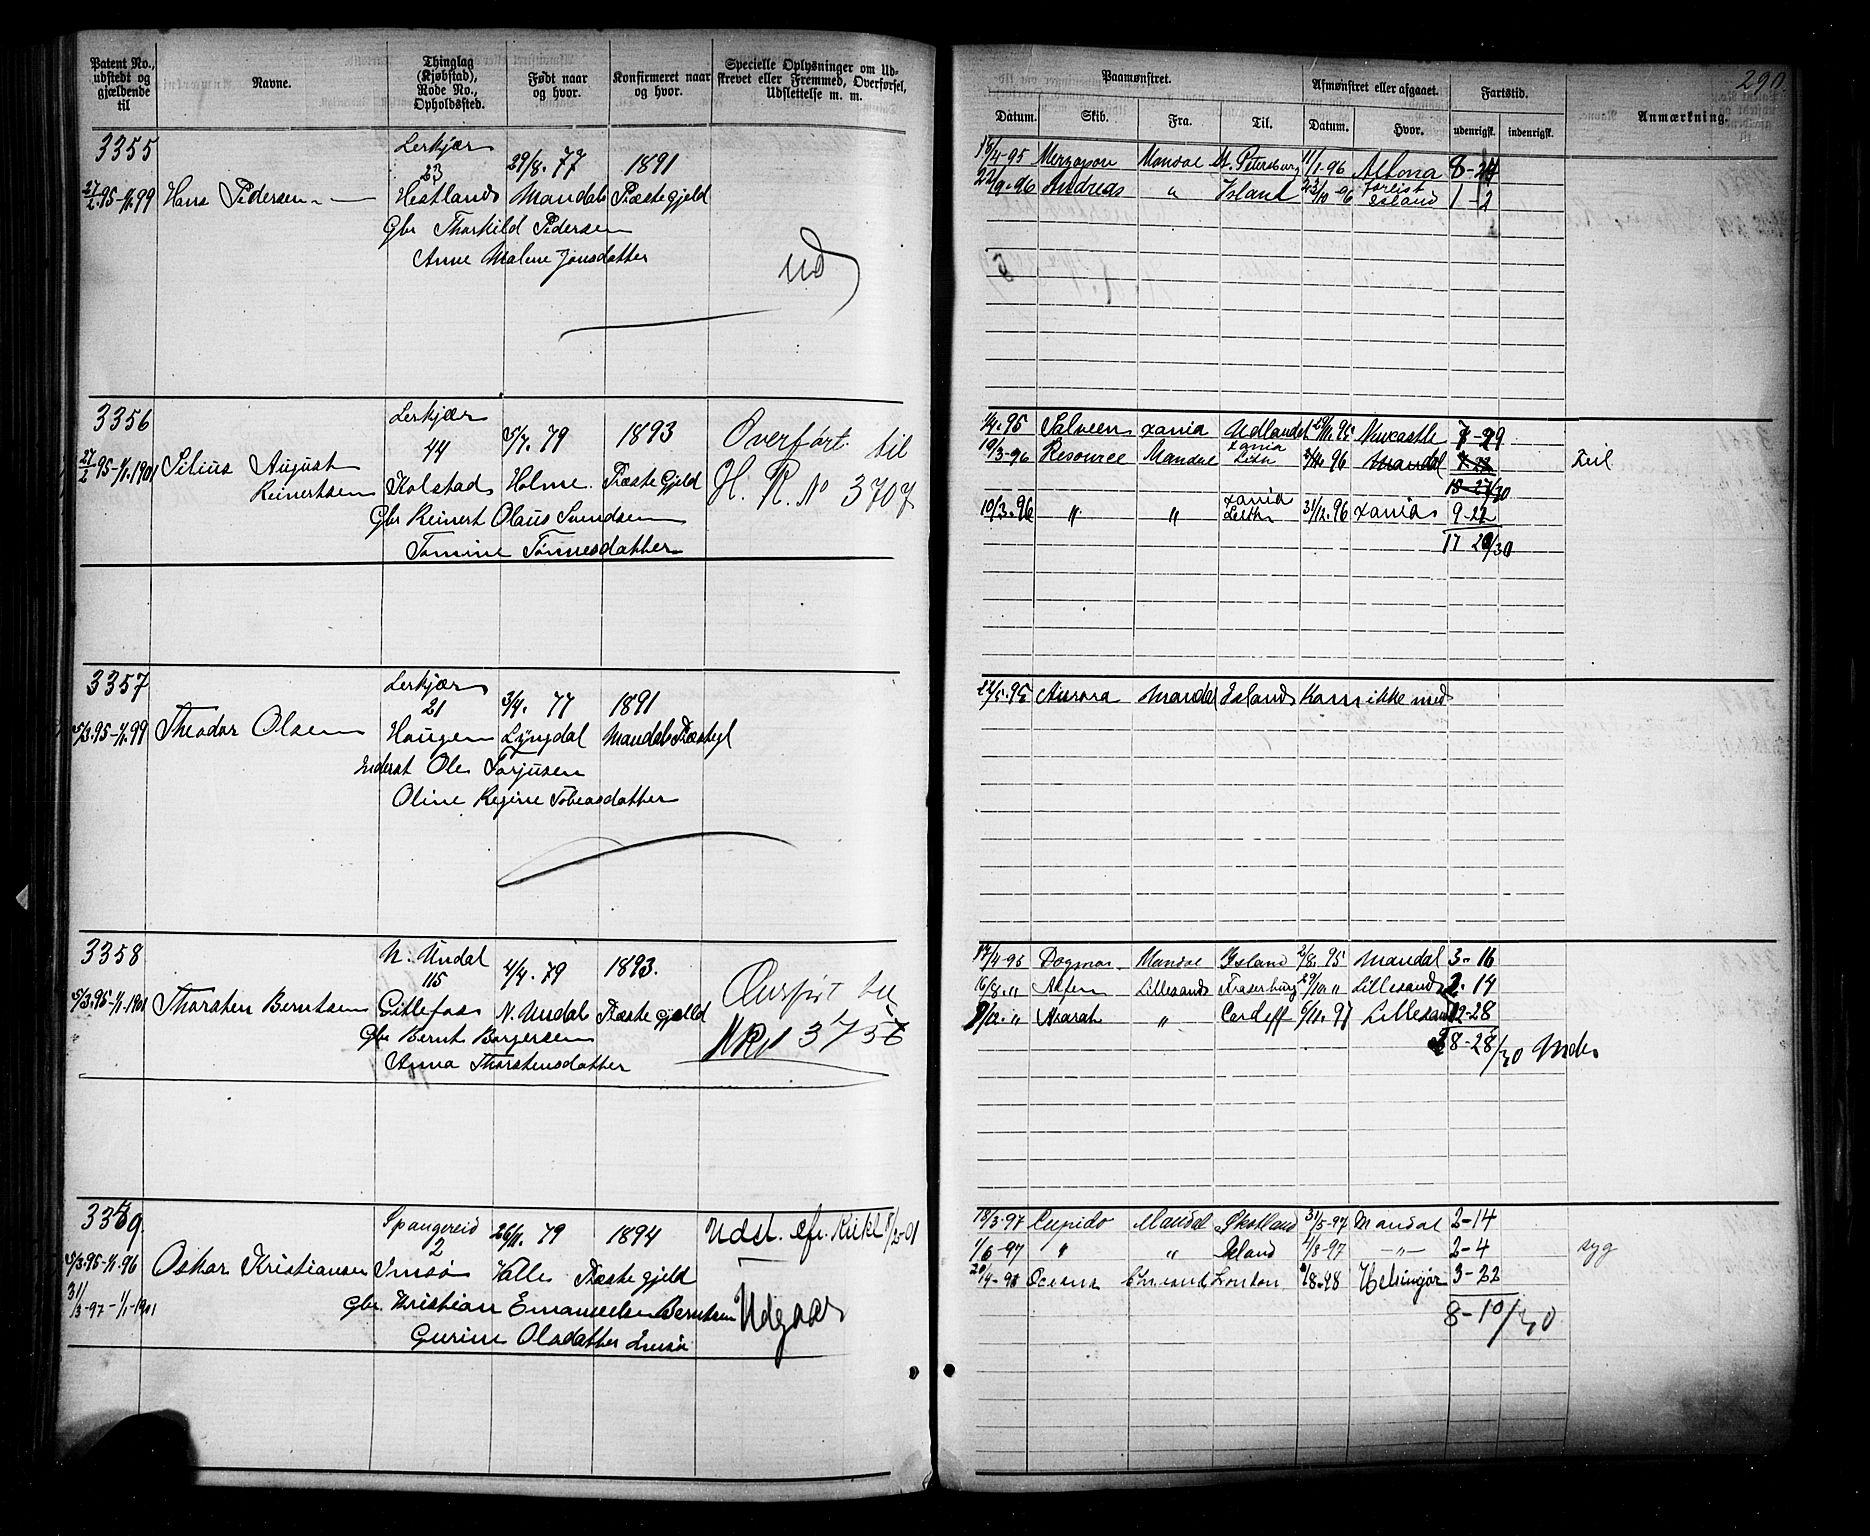 290.
Patent No., udstedt og gjældende til
Navne.
Thinglag (Kjøbstad), Rode No., Opholdssted.
Født naar og hvor.
Konfirmeret naar og hvor.
Specielle Oplysninger om Udskrevet eller Fremmed, Overførsel, Udslettelse m. m.
Paamønstret.
Afmønstret eller afgaaet.
Fartstid.
Anmærkning.
Datum.
Skib.
Fra.
Til.
Datum.
Hvor.
udenrigsk.
indenrigsk.
3355
Lerkjær
23
29/8. 77
1891
27/2.95-1/1.99
Hans Pedersen
Hestland
Mandals Præstegjeld
Gbr Thorkild Pedersen
Anne Malene Jonsdatter
ud
18/4-95 Mandal St. Petersburg 11/1-96 Altona 8-24
22/9-96 Andreas " Island 23/10-96 forlist Island 1-2
3356
Lerkjær
44
5/7. 79
1893
Overført til
27/2 95-1/1.1901
Silius August Reinertsen
Kolstad
Holme Præstegjeld
H. R. No 3707
Gbr Reinert Olaus Svendsen
Tomine Tønnesdatter
1/4.95 Salveen xania Udlandet 95 Newcastle 7-29
19/3-96 Resource Mandal xania Leith 96 Mandal
15-27/30
Feil
10/3.96 " " xania Leith 31/12.96 xania 9-22
17 20/30
3357
Lerkjær
21
3/4. 77
1891
5/3.95-1/1.99
Theodor Olsen
Haugen
Lyngdal
Mandals Præstegl
Inderst Ole Torjusen
Oline Regine Tobeasdatter
22/5.95 Aurora Mandal Island Kom ikke med
3358
N. Undal
115
4/4. 79
1893.
Overført til
5/3.95-1/1.1901
Thorsten Berntsen
Gitlefos
N. Undal Præstegjeld
HR No 3758
Gbr Bernt Borgersen
Anna Thorstensdatter
17/4-95 Dagmar Mandal Island 2/8.95 Mandal 3-16
16/8." Alfen Lillesand Fraserburg 29/10 " Lillesand 2-14
" Ararat " Cardeff 6/11.97 Lillesand 22-28
28-28/30
3359.
Spangereid
2
26/11. 79
1894
Udsl. efr. Rkt 1/2-01
5/3.95-1/1.96
Oskar Kristiansen
Imsø
Valle Præstegjeld
31/3-97-1/1-1901
Gbr Kristian Emanuelsen Berntsen
Udgaar
Gurine Olsdatter Imsø
18/3-97 Cupido Mandal Skotland 31/5-97 Mandal 2-14
1/6-97 " " Island 4/8-97 -"- 2-4
syg
20/4-98 Oceana Chrsand London 8/8-98 Helsingør 3-22
8-10/30